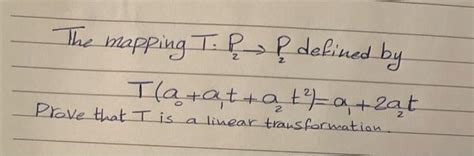 The mapping T: P₂ → P₂ defined by
T(a₀+a₁t+a₂t²)=a₁+2a₂t
Prove that T is a linear transformation.